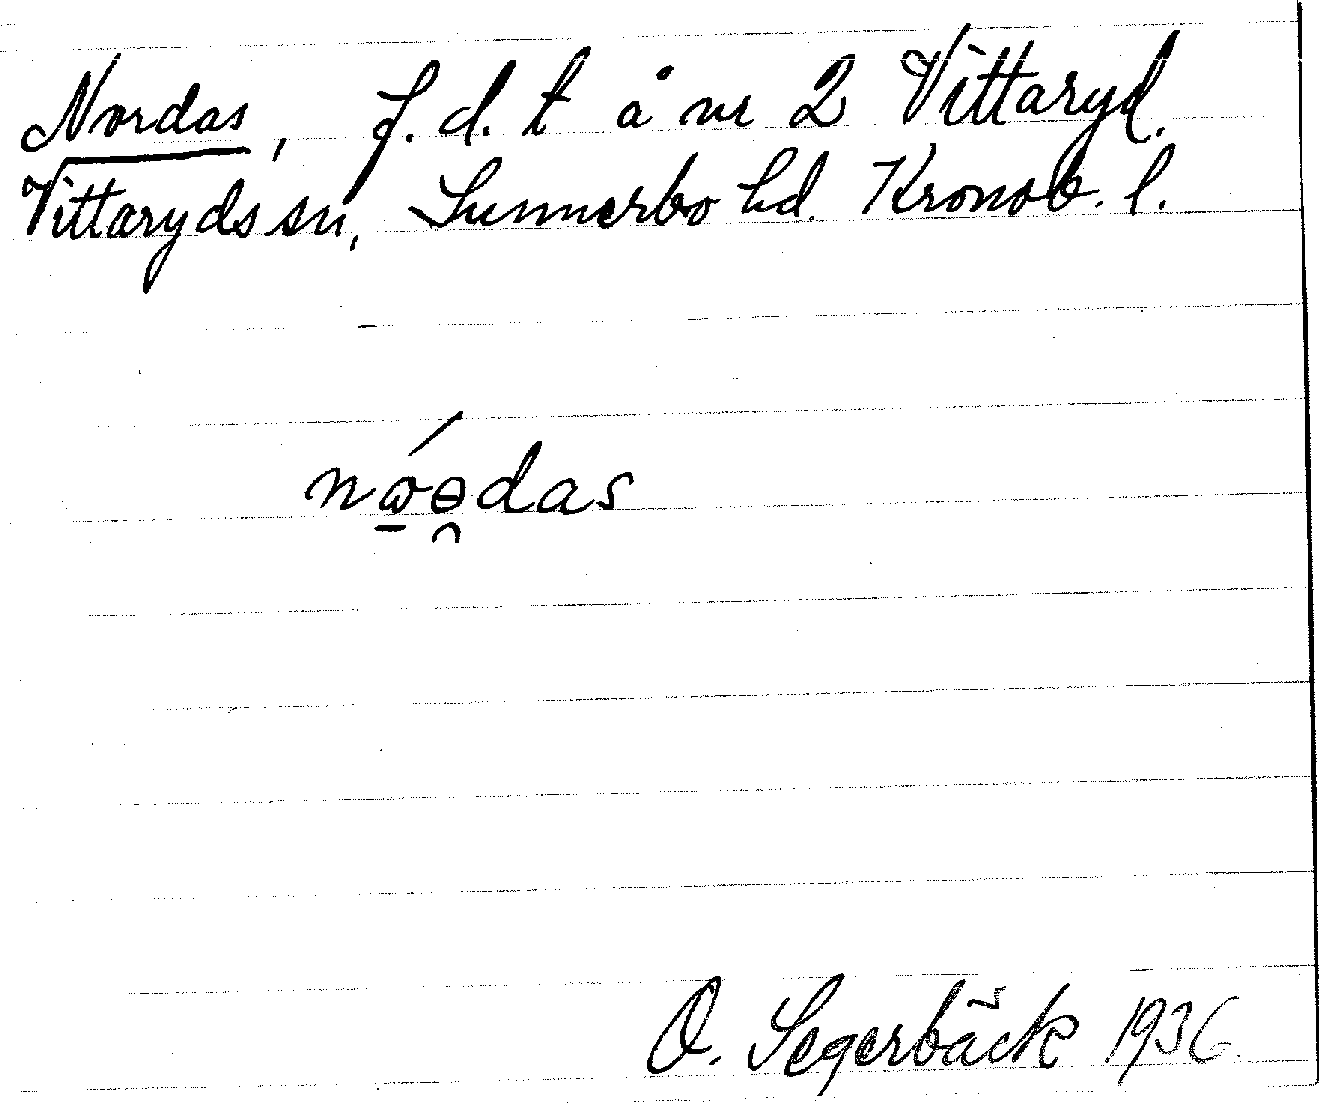 Nordas, f.d. t å nr 2 Vittaryd.
Vittaryds sn, Sunnerbo hd. Kronob. l.
nώ̱ɵ̯das
O. Segerbäck 1936.